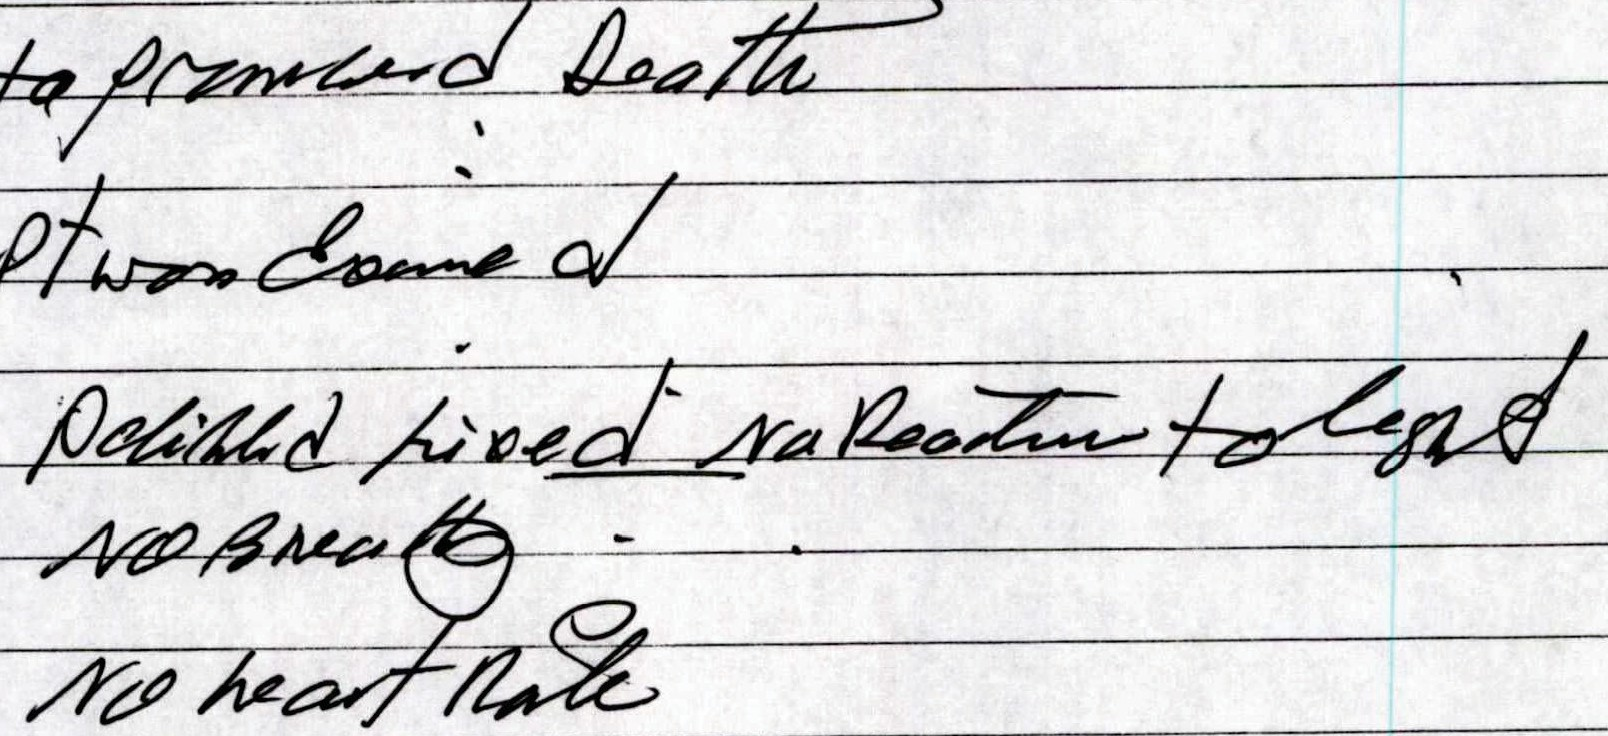 to pronounced Death
Pt was Examed
fixed No Reaction to light
NO Breath
No heart Rate